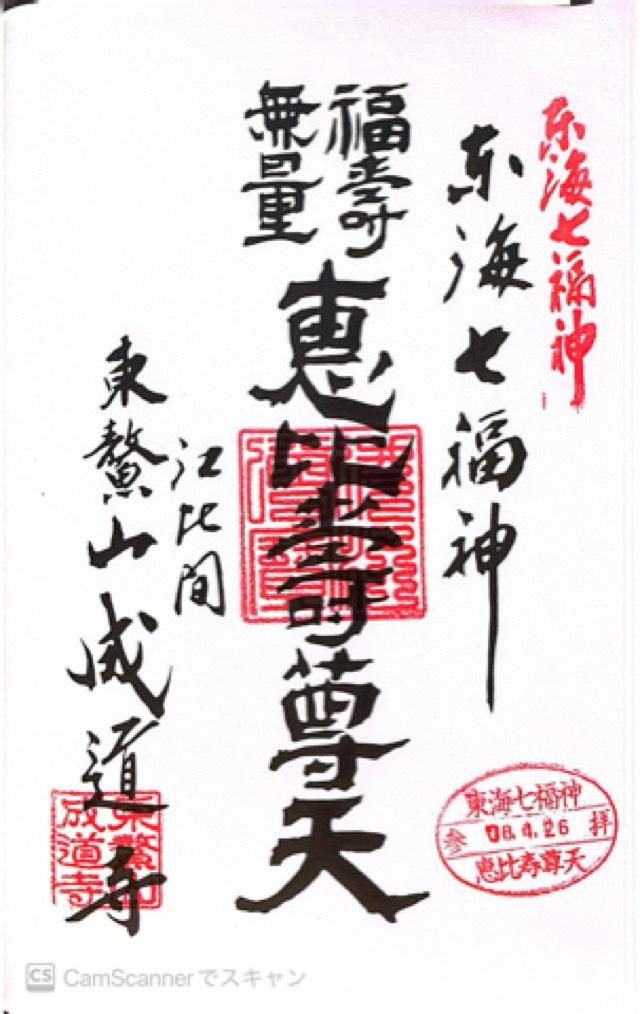 东海七福神
东海七福神
福壽
無量
惠比壽尊天
江比間
東鰲山成道寺
東鰲山
成道寺
東海七福神
参 08.4.26 拝
恵比寿尊天
CS CamScannerでスキャン